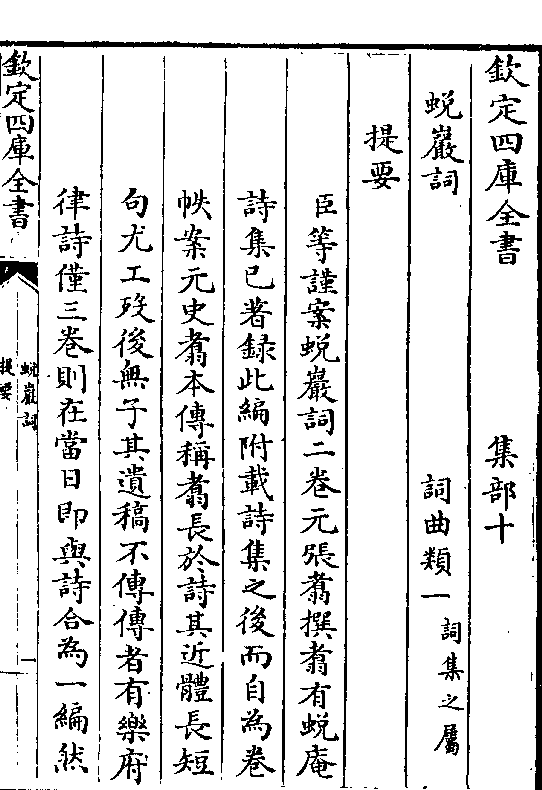 欽定四庫全書　集部十
蛻巖詞　詞曲類一 詞集之屬
提要
臣等謹案蛻巖詞二卷元張翥撰翥有蛻庵
詩集已著録此編附載詩集之後而自為卷
帙案元史翥本傳稱翥長於詩其近體長短
句尤工歿後無子其遺稿不傳傳者有樂府
律詩僅三卷則在當日即與詩合為一編然
欽定四庫全書
蛻巖詞
提要
一